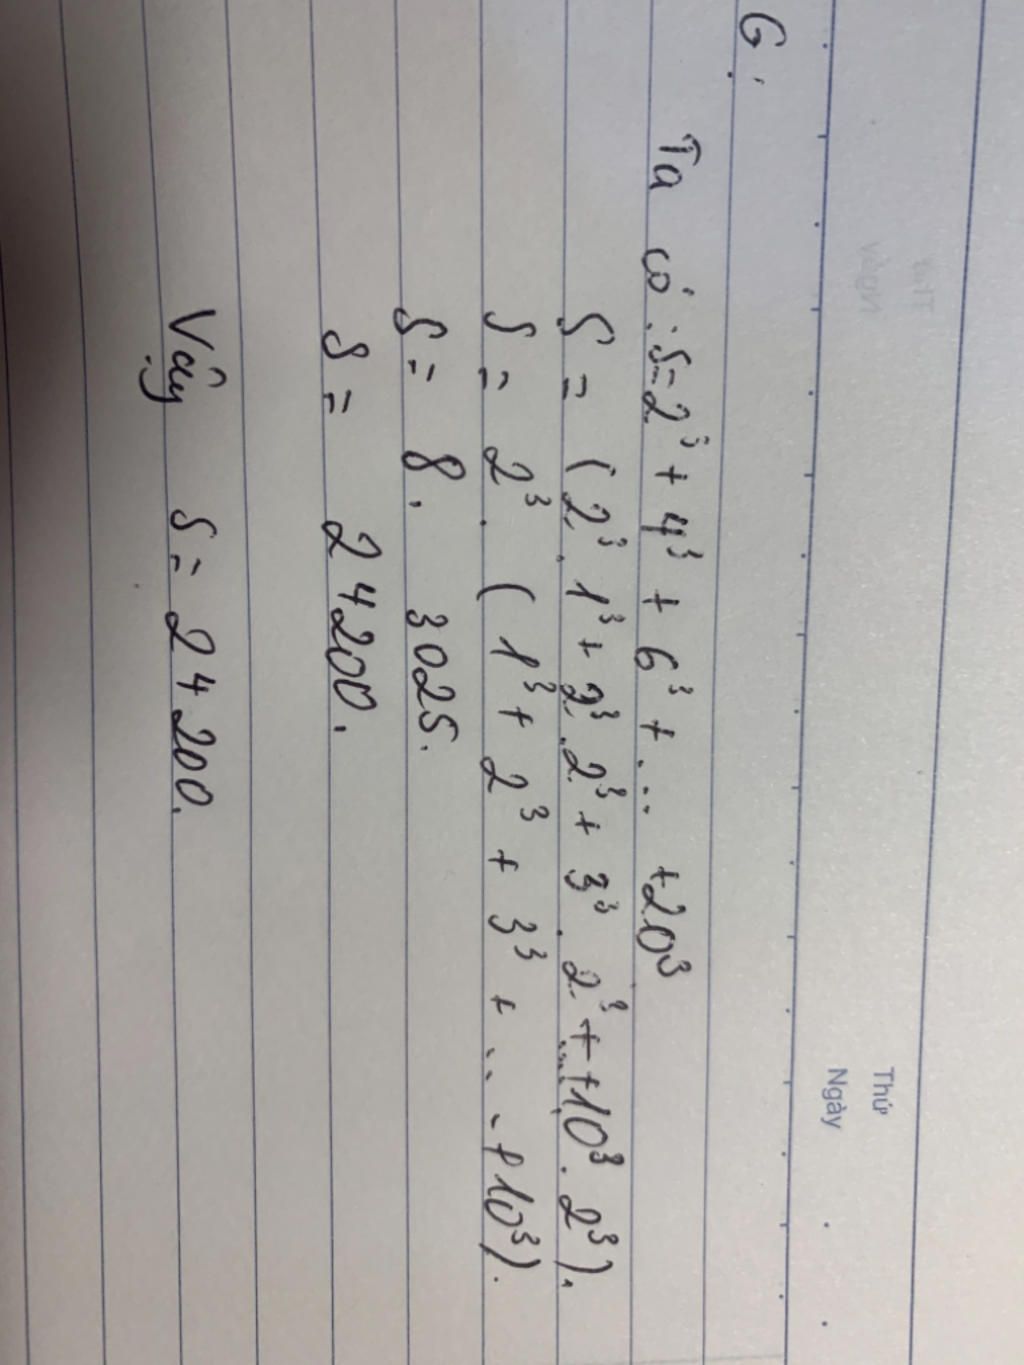 Thứ
Ngày
G:
Ta có: S=2³ + 4³ + 6³ + ... +20³
S = (2³. 1³ + 2³.2³ + 3³. 2³ + ... +10³. 2³).
S = 2³. (1³ + 2³ + 3³ + ... + 10³).
S = 8. 3025.
S = 24200.
Vậy S = 24200.